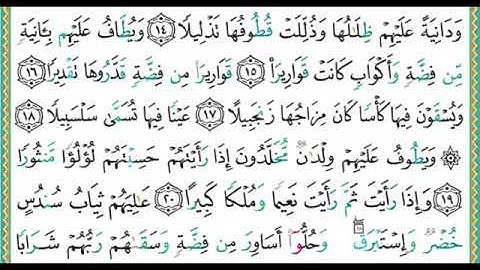 وَدَانِيَةً عَلَيْهِمْ ظِلَٰلُهَا وَذُلِّلَتْ قُطُوفُهَا تَذْلِيلًا ١٤ وَيُطَافُ عَلَيْهِم بِـَٔانِيَةٍ
مِّن فِضَّةٍ وَأَكْوَابٍ كَانَتْ قَوَارِيرَا۠ ١٥ قَوَارِيرَا۟ مِن فِضَّةٍ قَدَّرُوهَا تَقْدِيرًا ١٦
وَيُسْقَوْنَ فِيهَا كَأْسًا كَانَ مِزَاجُهَا زَنجَبِيلًا ١٧ عَيْنًا فِيهَا تُسَمَّىٰ سَلْسَبِيلًا ١٨
۞ وَيَطُوفُ عَلَيْهِمْ وِلْدَٰنٌ مُّخَلَّدُونَ إِذَا رَأَيْتَهُمْ حَسِبْتَهُمْ لُؤْلُؤًا مَّنثُورًا
١٩ وَإِذَا رَأَيْتَ ثَمَّ رَأَيْتَ نَعِيمًا وَمُلْكًا كَبِيرًا ٢٠ عَٰلِيَهُمْ ثِيَابُ سُندُسٍ
خُضْرٌ وَإِسْتَبْرَقٌ ۖ وَحُلُّوٓا۟ أَسَاوِرَ مِن فِضَّةٍ وَسَقَىٰهُمْ رَبُّهُمْ شَرَابًا